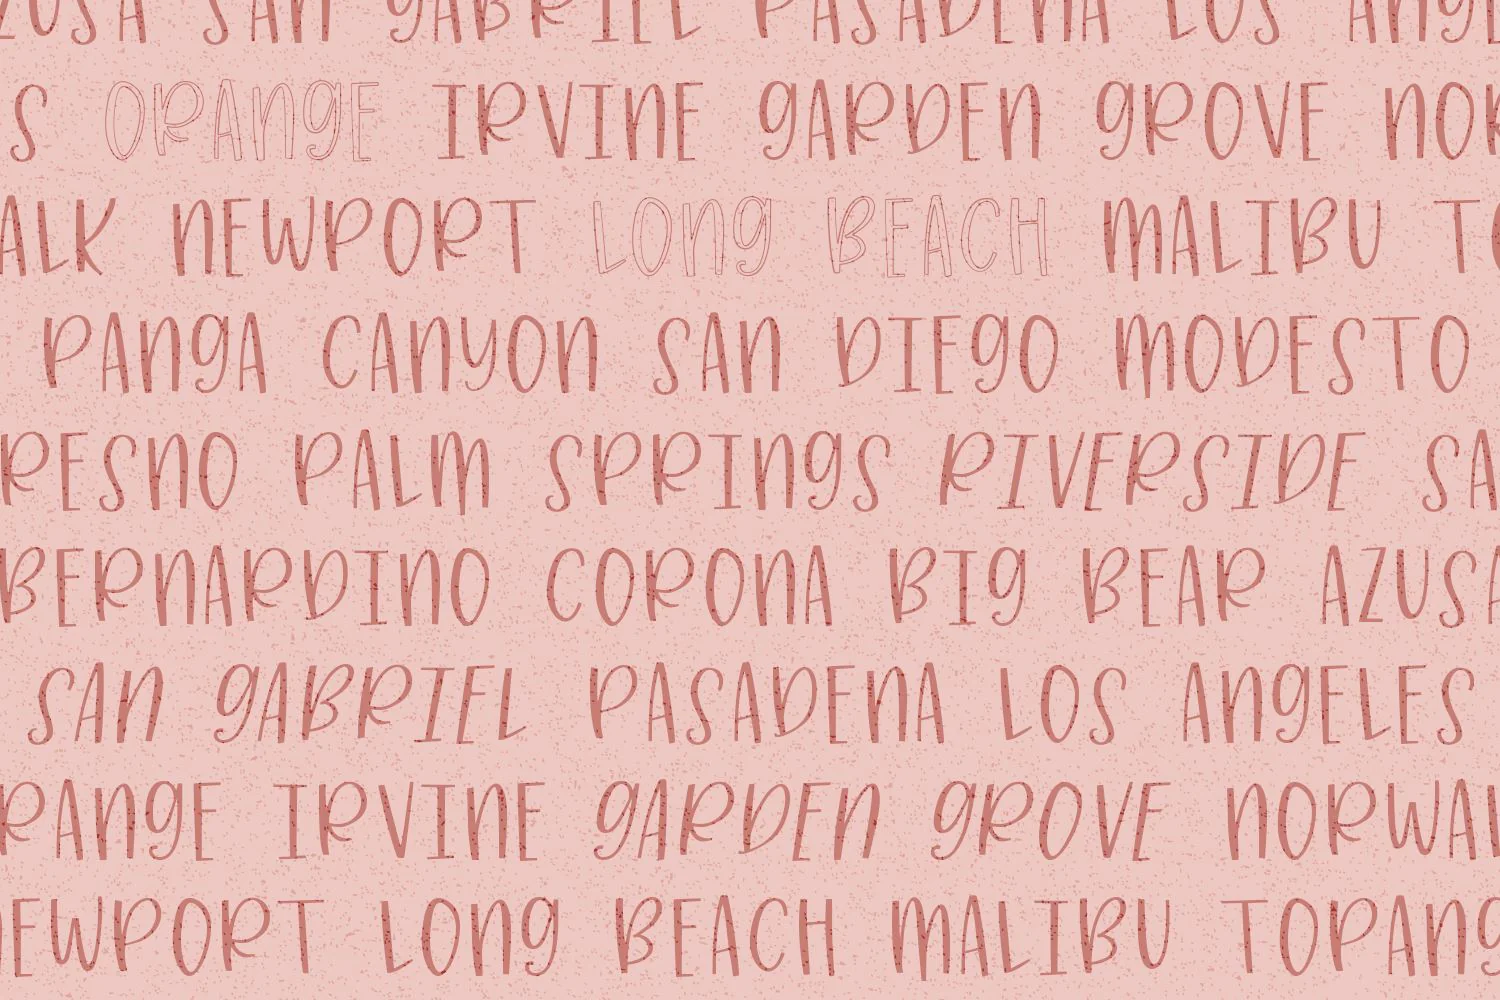 AZUSA SAN GABRIEL PASADENA LOS ANGE
S ORANGE IRVINE GARDEN GROVE NOR
ALK NEWPORT LONG BEACH MALIBU TO
PANGA CANYON SAN DIEGO MODESTO
RESNO PALM SPRINGS RIVERSIDE SA
BERNARDINO CORONA BIG BEAR AZUSA
SAN GABRIEL PASADENA LOS ANGELES
RANGE IRVINE GARDEN GROVE NORWAL
NEWPORT LONG BEACH MALIBU TOPANG